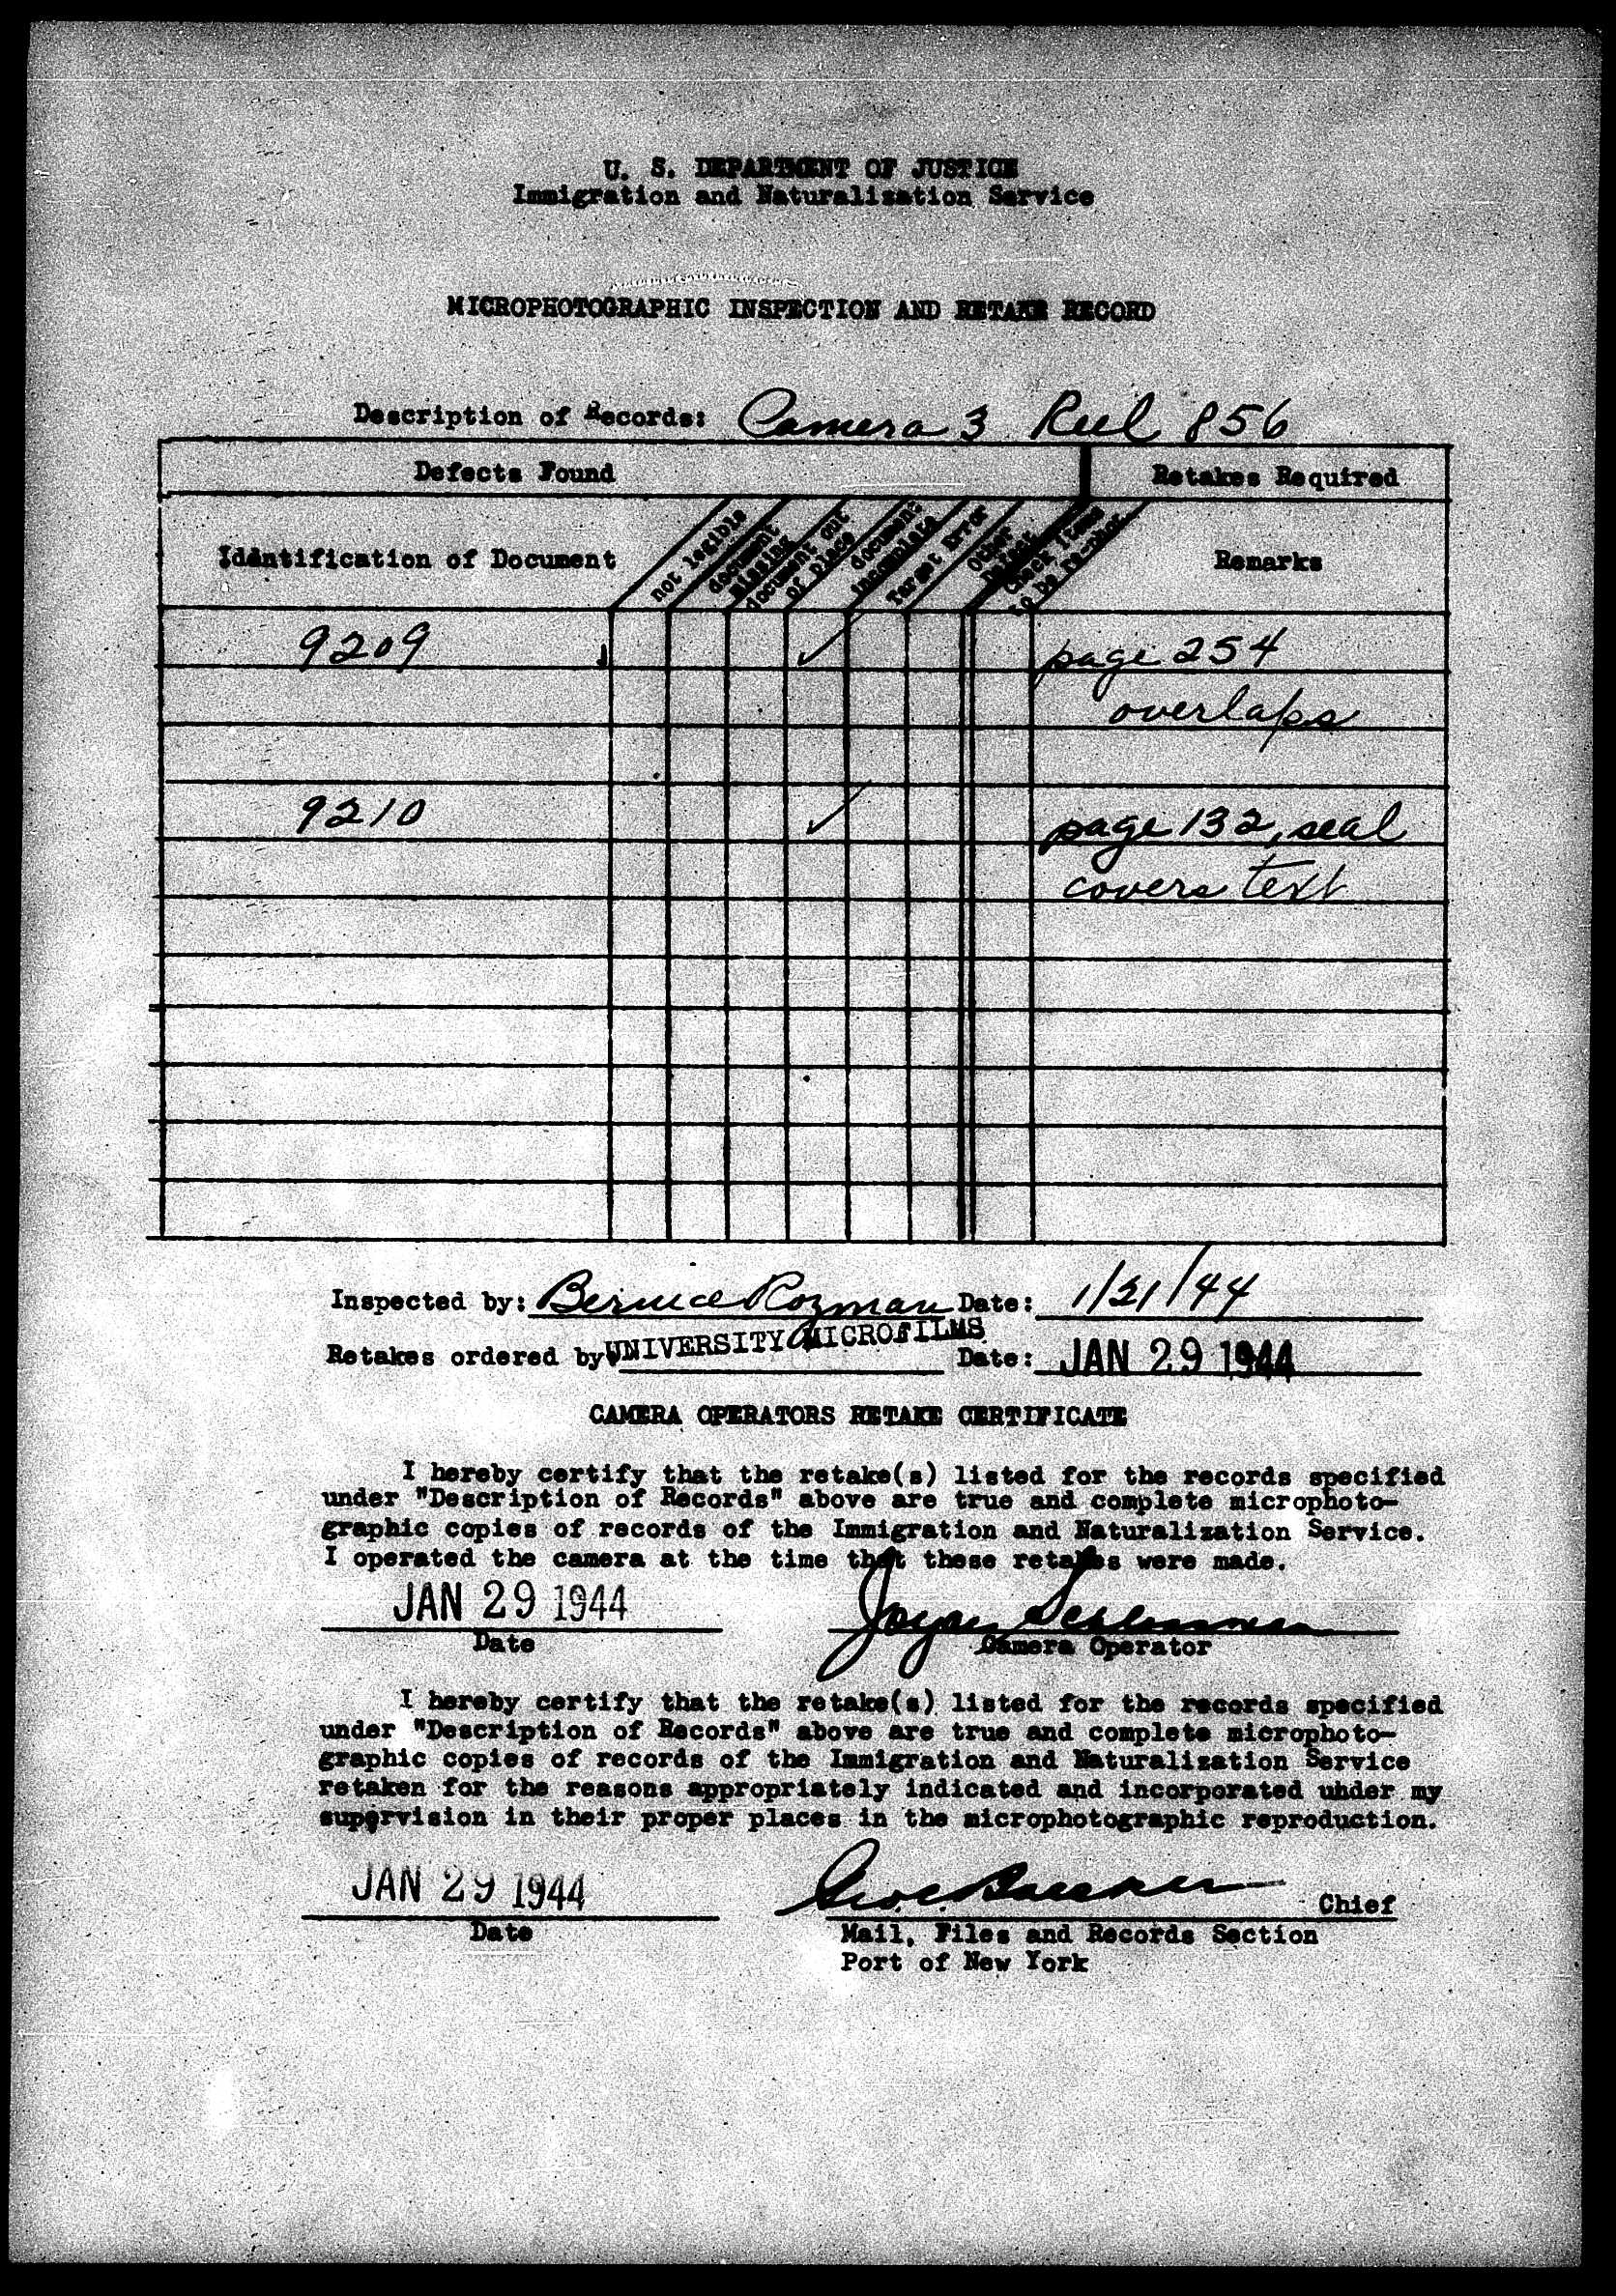 U. S. DEPARTMENT OF JUSTICE
Immigration and Naturalization Service
MICROPHOTOGRAPHIC INSPECTION AND RETAKE RECORD
Description of Records: Camera 3 Reel 856
Defects Found
Retakes Required
Identification of Document
not legible
document missing
document out of place
document incomplete
Target Error
Other
Check items
to be re-phot
Remarks
9209 ✓ page 254
overlaps
9210 ✓ page 132, seal
covers text
Inspected by: Bernice Rozman Date: 1/21/44
Retakes ordered by UNIVERSITY MICROFILMS Date: JAN 29 1944
CAMERA OPERATORS RETAKE CERTIFICATE
I hereby certify that the retake(s) listed for the records specified
under "Description of Records" above are true and complete microphoto-
graphic copies of records of the Immigration and Naturalization Service.
I operated the camera at the time that these retakes were made.
JAN 29 1944
Date
Camera Operator
I hereby certify that the retake(s) listed for the records specified
under "Description of Records" above are true and complete microphoto-
graphic copies of records of the Immigration and Naturalization Service
retaken for the reasons appropriately indicated and incorporated under my
supervision in their proper places in the microphotographic reproduction.
JAN 29 1944 Chief
Date
Mail, Files and Records Section
Port of New York